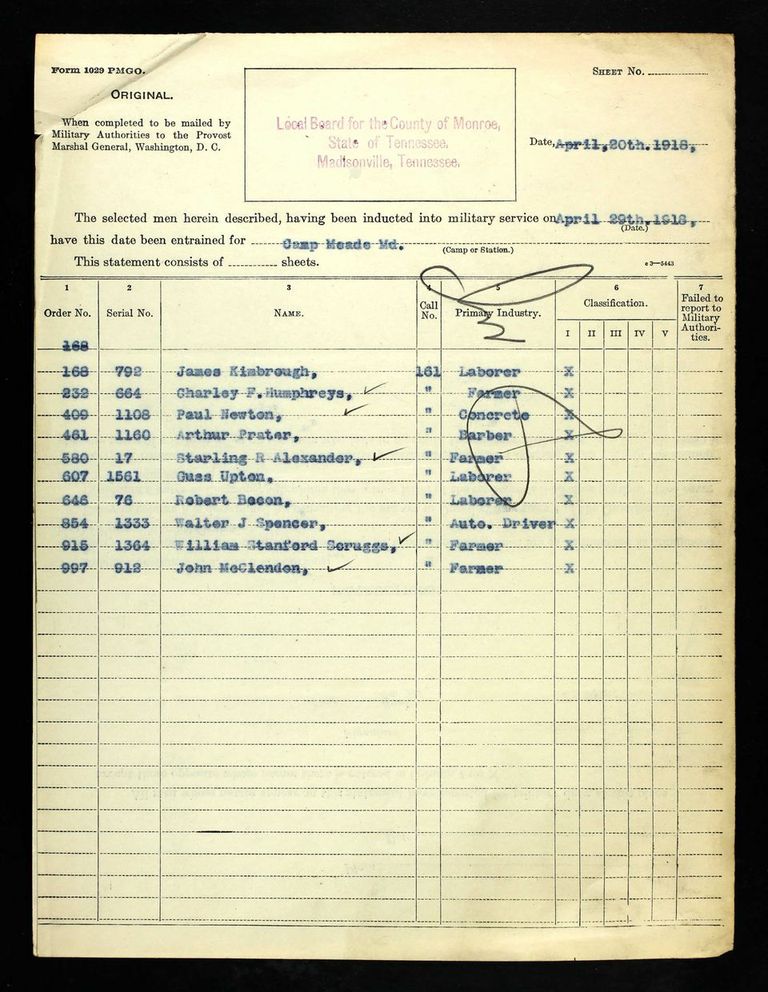 Form 1029 PMGO.
SHEET NO.
ORIGINAL.
When completed to be mailed by
Military Authorities to the Provost
Marshal General, Washington, D. C.
Local Board for the County of Monroe,
State of Tennessee.
Madisonville, Tennessee.
Date, April,20th.1918,
The selected men herein described, having been inducted into military service on April 29th.1918,
(Date.)
have this date been entrained for Camp Meade Md.
(Camp or Station.)
This statement consists of sheets.
c 3—5443
1 2 3 4 5 6 7
Order No. Serial No. NAME. Call No. Primary Industry. Classification. Failed to report to Military Authorities.
I II III IV V
168
168 792 James Kimbrough, 161 Laborer X
232 664 Charley F.Humphreys, " Farmer X
409 1108 Paul Newton, " Concrete X
461 1160 Arthur Prater, " Barber X
580 17 Starling R Alexander, " Farmer X
607 1561 Guss Upton, " Laborer X
646 76 Robert Bacon, " Laborer X
854 1333 Walter J Spencer, " Auto. Driver X
915 1364 William Stanford Scruggs, " Farmer X
997 912 John McClendon, " Farmer X